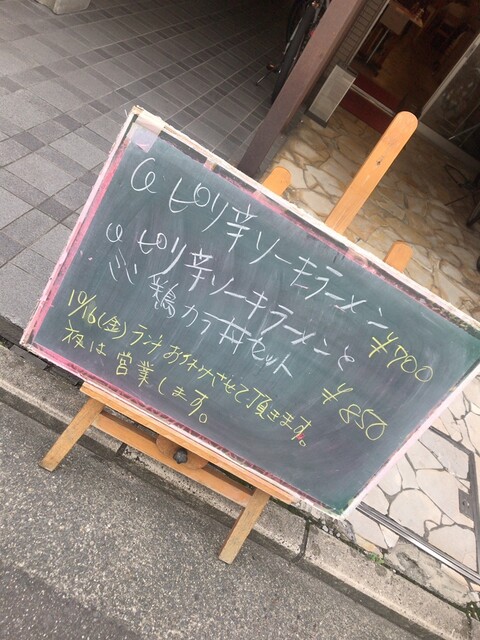 ピリ辛ソーキラーメン
¥700
ピリ辛ソーキラーメンと
ミニ鶏カラ丼セット
¥850
10/16(金)ランチお休みさせて頂きます。
夜は営業します。